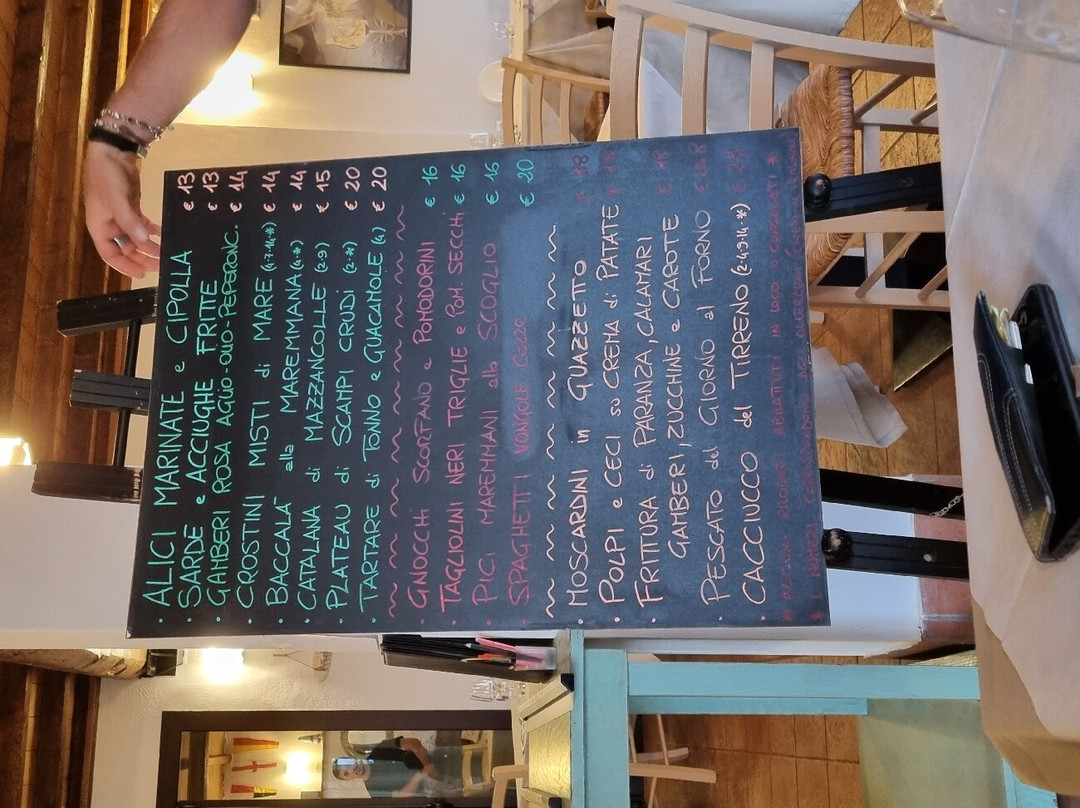 • ALICI MARINATE e CIPOLLA € 13
• SARDE e ACCIUGHE FRITTE € 13
• GAMBERI ROSA AGLIO-OLIO-PEPERONC. € 14
• CROSTINI MISTI di MARE (1-7-14-*) € 14
• BACCALÀ alla MAREMMANA (4-*) € 14
• CATALANA di MAZZANCOLLE (2-9) € 15
• PLATEAU di SCAMPI CRUDI (2-*) € 20
• TARTARE di TONNO e GUACAMOLE (4) € 20
• GNOCCHI SCORFANO e POMODORINI € 16
• TAGLIOLINI NERI TRIGLIE e POM. SECCHI € 16
• PICI MAREMMANI allo SCOGLIO € 16
• SPAGHETTI VONGOLE COZZE € 20
• MOSCARDINI in GUAZZETTO € 18
• POLPI e CECI su CREMA di PATATE € 18
• FRITTURA di PARANZA, CALAMARI
GAMBERI, ZUCCHINE e CAROTE € 18
• PESCATO del GIORNO al FORNO
• CACCIUCCO del TIRRENO (2-4-9-14-*)
* ALCUNI PRODOTTI ABBATTUTI IN LOCO O CONGELATI *
* I NUMERI